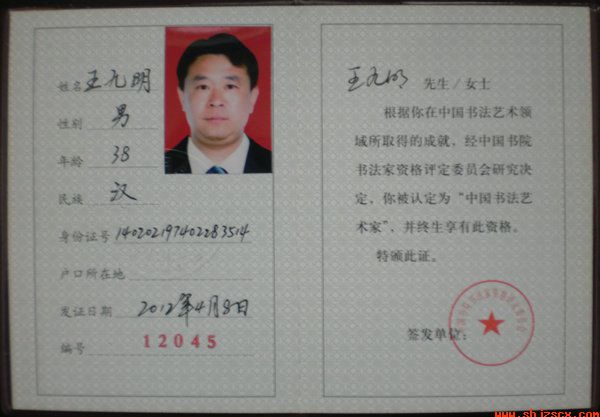 姓名 王九明
性别 男
年龄 38
民族 汉
身份证号 140202197402283514
户口所在地
发证日期 2012年4月8日
编号 12045
王九明 先生/女士
根据你在中国书法艺术领
域所取得的成就，经中国书院
书法家资格评定委员会研究决
定，你被认定为“中国书法艺
术家”，并终生享有此资格。
特颁此证。
签发单位：
www.shjzscx.com